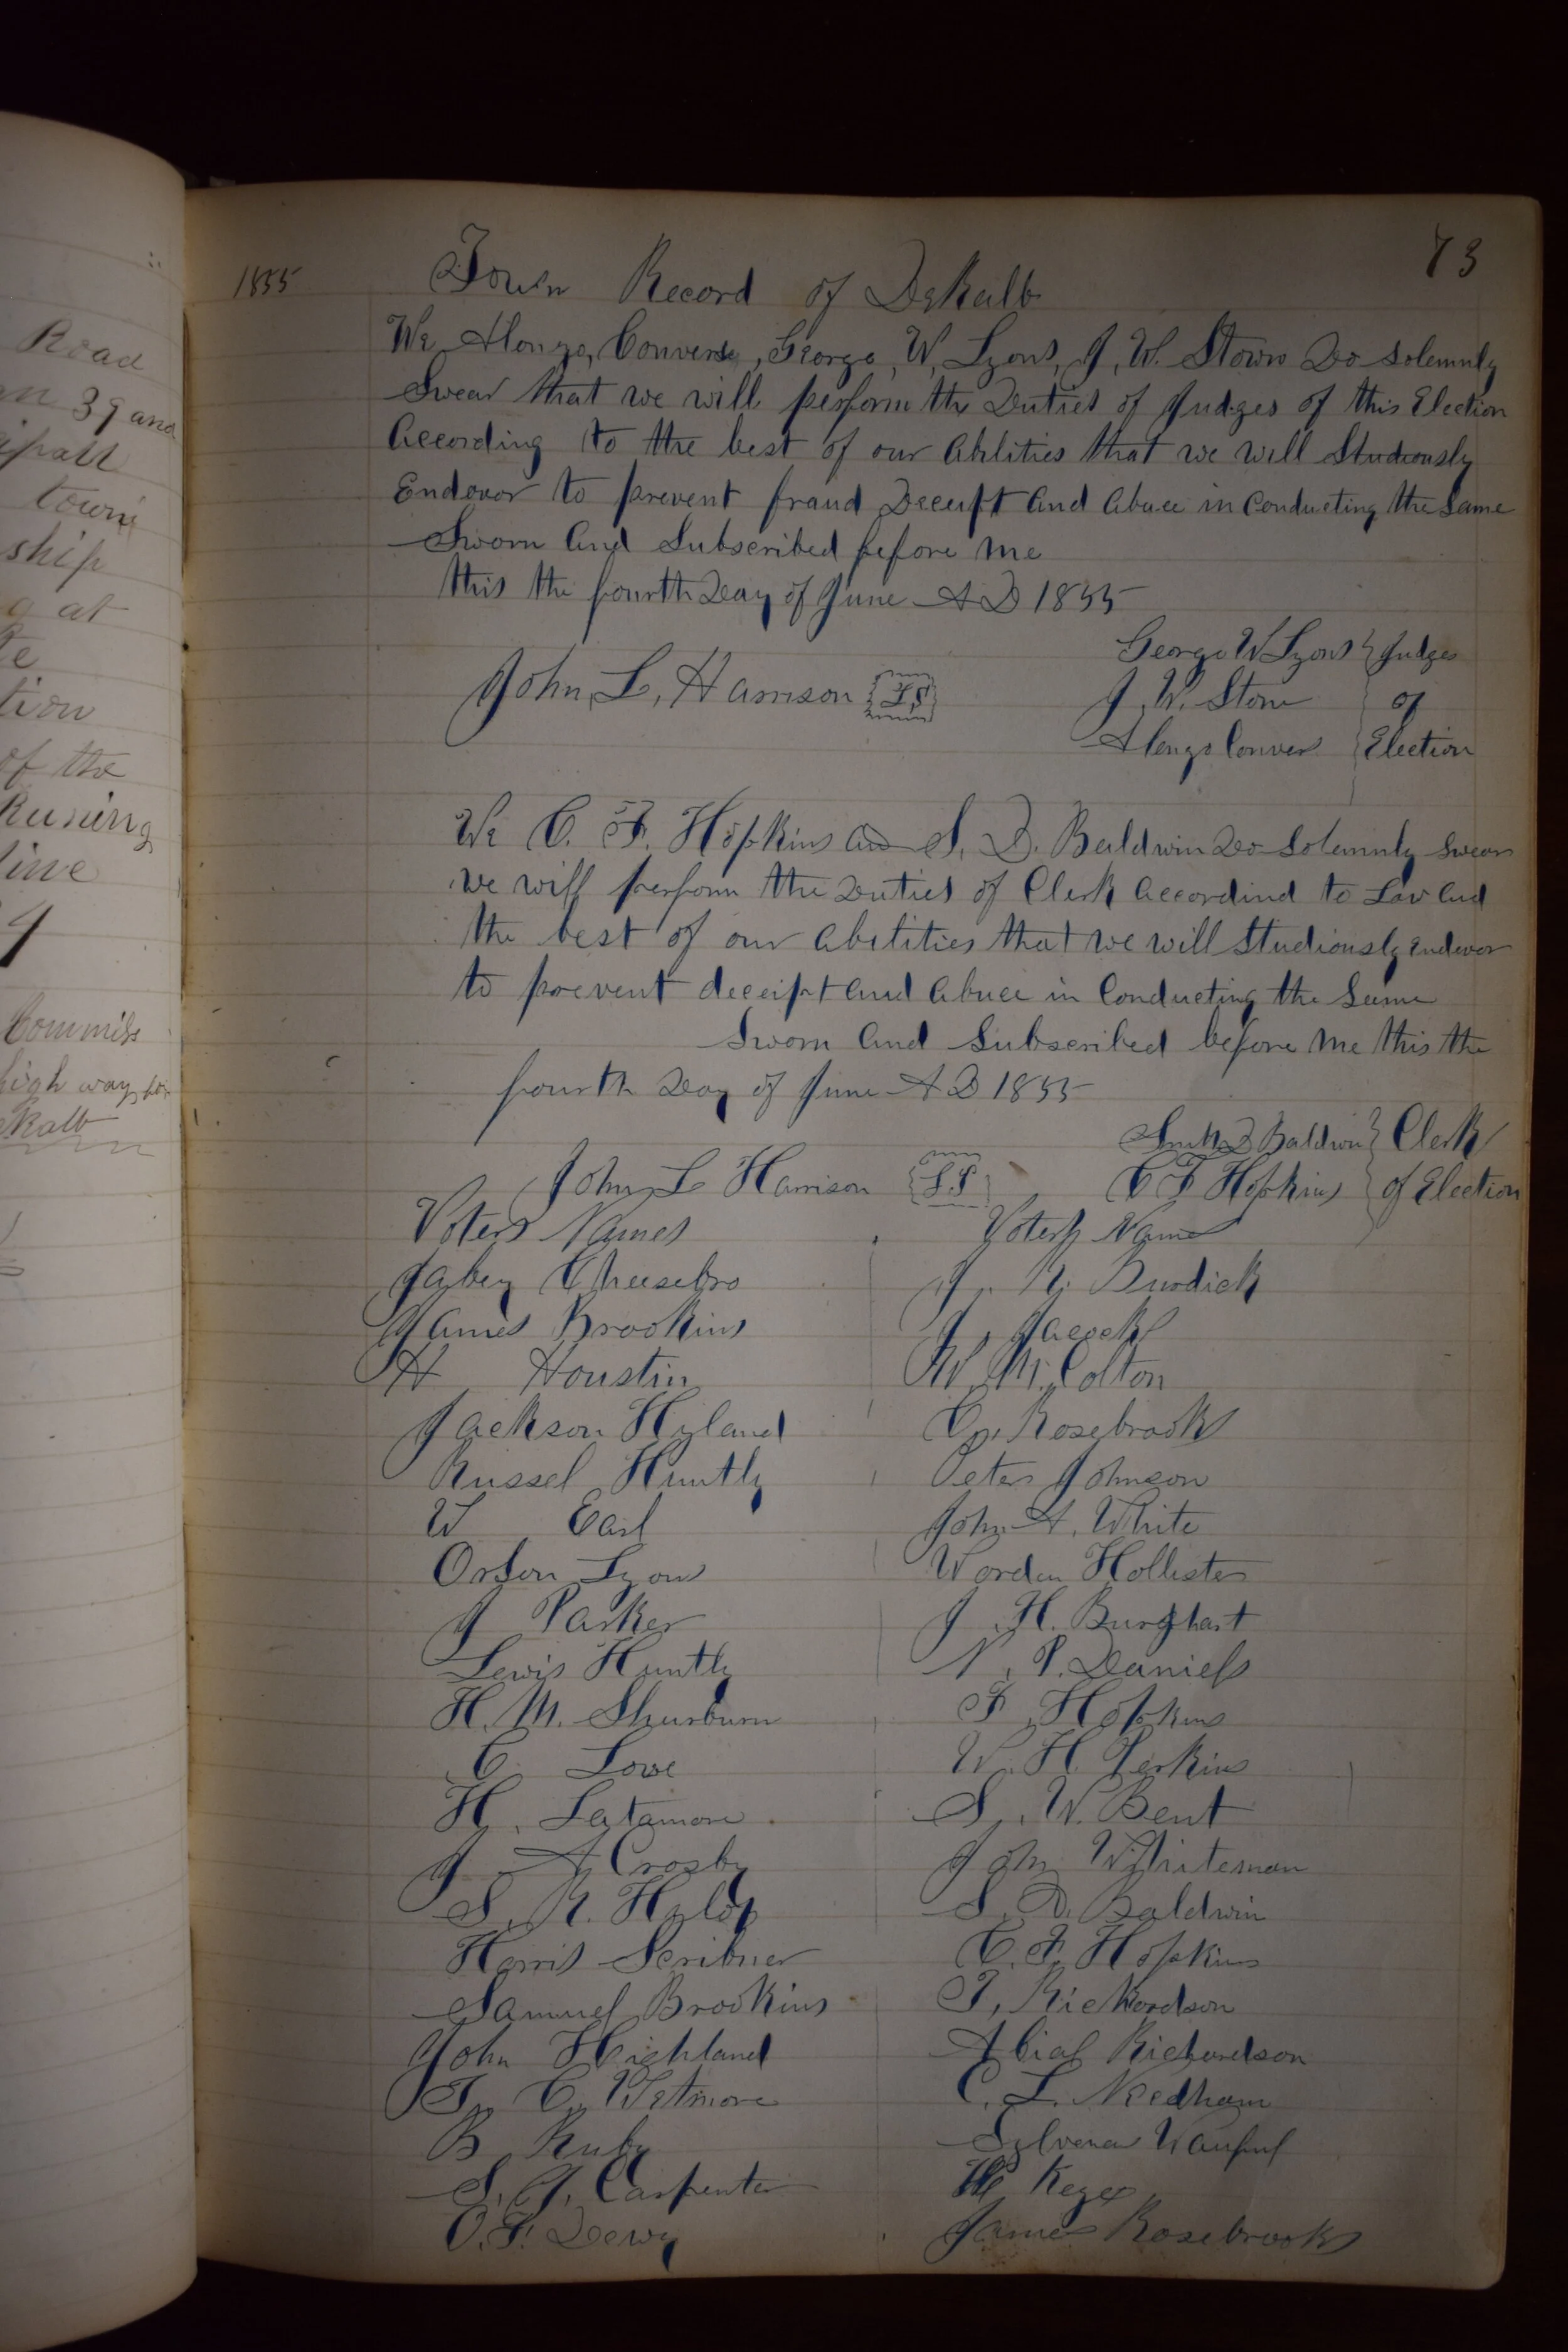 Road
39 and
town
ship
at
tion
of the
Runing
line
Commiss
high way for
73
1855
Town Record of DeKalb
We Alonzo, Converse, George, W, Lyons, J, W. Stown Do solemnly
Swear that we will perform the Duties of Judges of this Election
According to the best of our Abilities that we will Studiously
Endevor to prevent fraud Deceipt and Abuce in Conducting the Same
Sworn and Subscribed before Me
this the fourth Day of June A D 1855
George W Lyons } Judges
John, L, Harrison {LS}
J. W. Stone } of
Alonzo Convers } Election
We C. F. Hopkins and S. D. Baldwin Do Solemnly Swear
we will perform the Duties of Clerk Accordind to Law and
the best of our Abilities that we will Studiously Endevor
to prevent deceipt and Abuce in Conducting the Same
Sworn and Subscribed before Me this the
fourth Day of June A D 1855
Smith D Baldwin } Clerk
John L Harrison {LS} C F Hopkins } of Election
Voters Names
Jabez Cheesebro
James Brookins
H Houstin
Jackson Hyland
Russel Huntly
W Earl
Orson Lyons
J Parker
Lewis Huntly
H. M. Shurburn
C. Love
H. Latamore
J A Crosby
S. R.
Harris Scribner
Samuel Brookins
John Highland
C. Wetmore
B Ruby
S. J. Carpenter
O. F. Dewy
Voters Name
J. R. Burdick
J.
W. M. Colton
C. Rosebrooks
Peter Johnson
John A. White
Worden Hollister
J. H. Burghart
N. P. Daniels
F. Hopkins
W. H. Perkins
S. W. Bent
John Whiteman
S. D. Baldwin
C. F. Hopkins
Rickordson
Abial Richardson
C. L. Needham
Keyes
James Rosebrooks